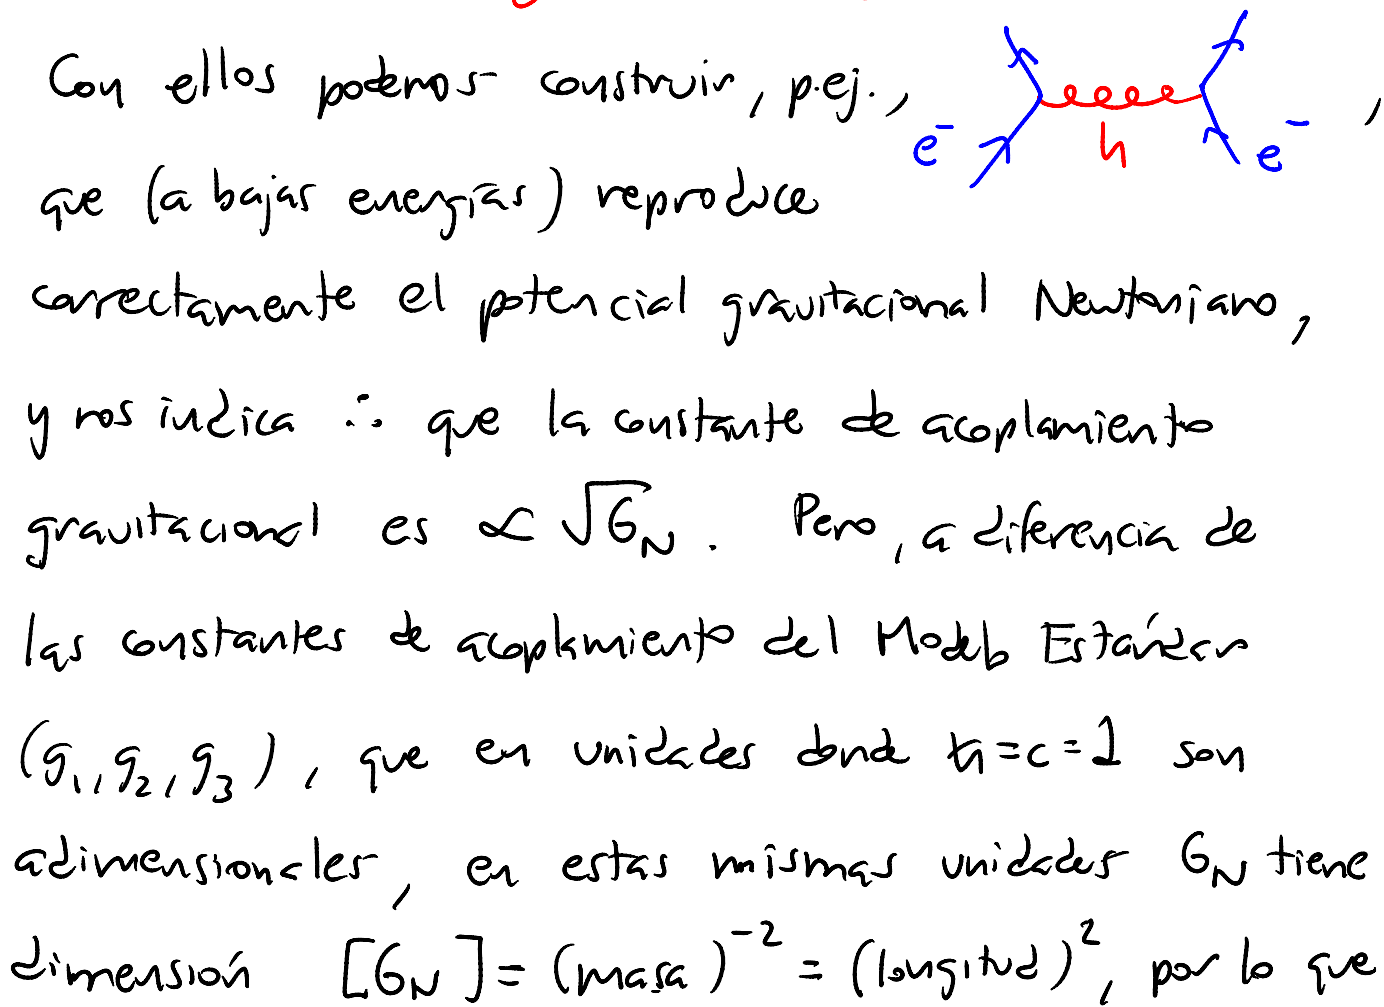 Con ellos podemos construir, p.ej., e⁻ h e⁻ ,
que (a bajas energías) reproduce
correctamente el potencial gravitacional Newtoniano,
y nos indica ∴ que la constante de acoplamiento
gravitacional es ∝ √G_N . Pero, a diferencia de
las constantes de acoplamiento del Modelo Estándar
(g₁, g₂, g₃), que en unidades donde ħ=c=1 son
adimensionales, en estas mismas unidades G_N tiene
dimensión [G_N] = (masa)⁻² = (longitud)², por lo que